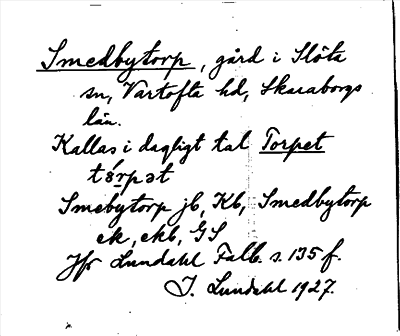 Smedbytorp, gård i Slöta
sn, Vartofta hd, Skaraborgs
län.
Kallas i dagligt tal Torpet
tɷ́rpət
Smebytorp jb, Kb, Smedbytorp
ek, ekb, GS
Jfr Lundahl Falb. s. 135 f.
I. Lundahl 1927.